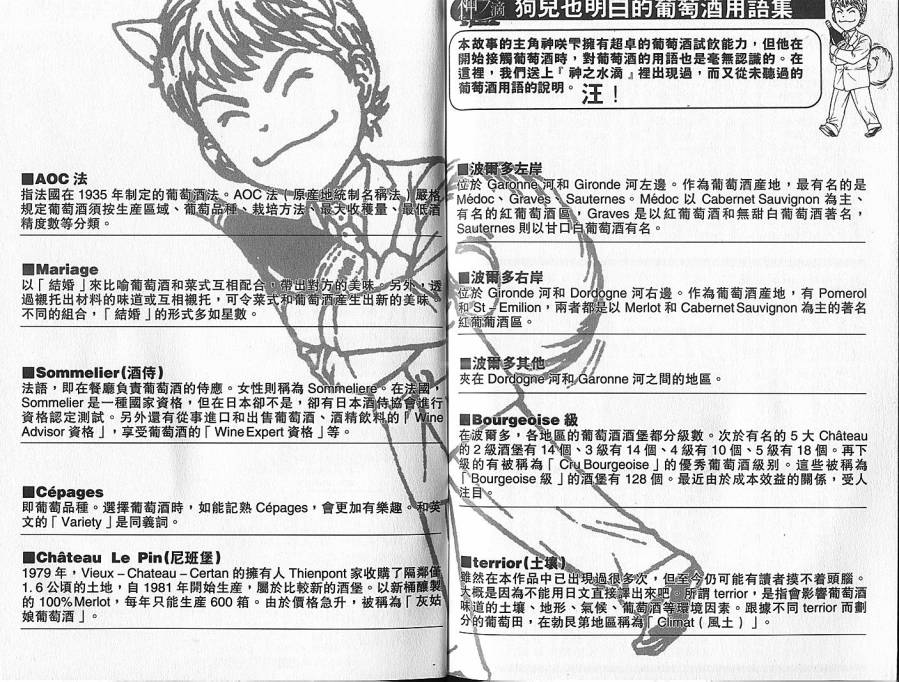 神の滴
狗兒也明白的葡萄酒用語集
本故事的主角神咲雫擁有超卓的葡萄酒試飲能力，但他在
開始接觸葡萄酒時，對葡萄酒的用語也是毫無認識的。在
這裡，我們送上『神之水滴』裡出現過，而又從未聽過的
葡萄酒用語的說明。汪！
■波爾多左岸
位於 Garonne 河和 Gironde 河左邊。作為葡萄酒產地，最有名的是
Médoc、Graves、Sauternes。Médoc 以 Cabernet Sauvignon 為主、
有名的紅葡萄酒區，Graves 是以紅葡萄酒和無甜白葡萄酒著名，
Sauternes 則以甘口白葡萄酒有名。
■波爾多右岸
位於 Gironde 河和 Dordogne 河右邊。作為葡萄酒產地，有 Pomerol
和 St–Emilion，兩者都是以 Merlot 和 Cabernet Sauvignon 為主的著名
紅葡葡酒區。
■波爾多其他
夾在 Dordogne 河和 Garonne 河之間的地區。
■Bourgeoise 級
在波爾多，各地區的葡萄酒酒堡都分級數。次於有名的 5 大 Château
的 2 級酒堡有 14 個、3 級有 14 個、4 級有 10 個、5 級有 18 個。再下
級的有被稱為「Cru Bourgeoise」的優秀葡萄酒級別。這些被稱為
「Bourgeoise 級」的酒堡有 128 個。最近由於成本效益的關係，受人
注目。
■terrior(土壤)
雖然在本作品中已出現過很多次，但至今仍可能有讀者摸不着頭腦。
大概是因為不能用日文直接譯出來吧。所謂 terrior，是指會影響葡萄酒
味道的土壤、地形、氣候、葡萄酒等環境因素。跟據不同 terrior 而劃
分的葡萄田，在勃艮第地區稱為「Climat（風土）」。
■AOC 法
指法國在 1935 年制定的葡萄酒法。AOC 法（原産地統制名稱法）嚴格
規定葡萄酒須按生產區域、葡萄品種、栽培方法、最大收穫量、最低酒
精度數等分類。
■Mariage
以「結婚」來比喻葡萄酒和菜式互相配合，帶出對方的美味。另外，透
過襯托出材料的味道或互相襯托，可令菜式和葡萄酒産生出新的美味。
不同的組合，「結婚」的形式多如星數。
■Sommelier(酒侍)
法語，即在餐廳負責葡萄酒的侍應。女性則稱為 Sommeliere。在法國，
Sommelier 是一種國家資格，但在日本卻不是，卻有日本酒侍協會進行
資格認定測試。另外還有從事進口和出售葡萄酒、酒精飲料的「Wine
Advisor 資格」，享受葡萄酒的「Wine Expert 資格」等。
■Cépages
即葡萄品種。選擇葡萄酒時，如能記熟 Cépages，會更加有樂趣。和英
文的「Variety」是同義詞。
■Château Le Pin(尼班堡)
1979 年，Vieux–Chateau–Certan 的擁有人 Thienpont 家收購了隔鄰僅
1.6 公頃的土地，自 1981 年開始生産，屬於比較新的酒堡。以新桶釀製
的 100%Merlot，每年只能生産 600 箱。由於價格急升，被稱為「灰姑
娘葡萄酒」。